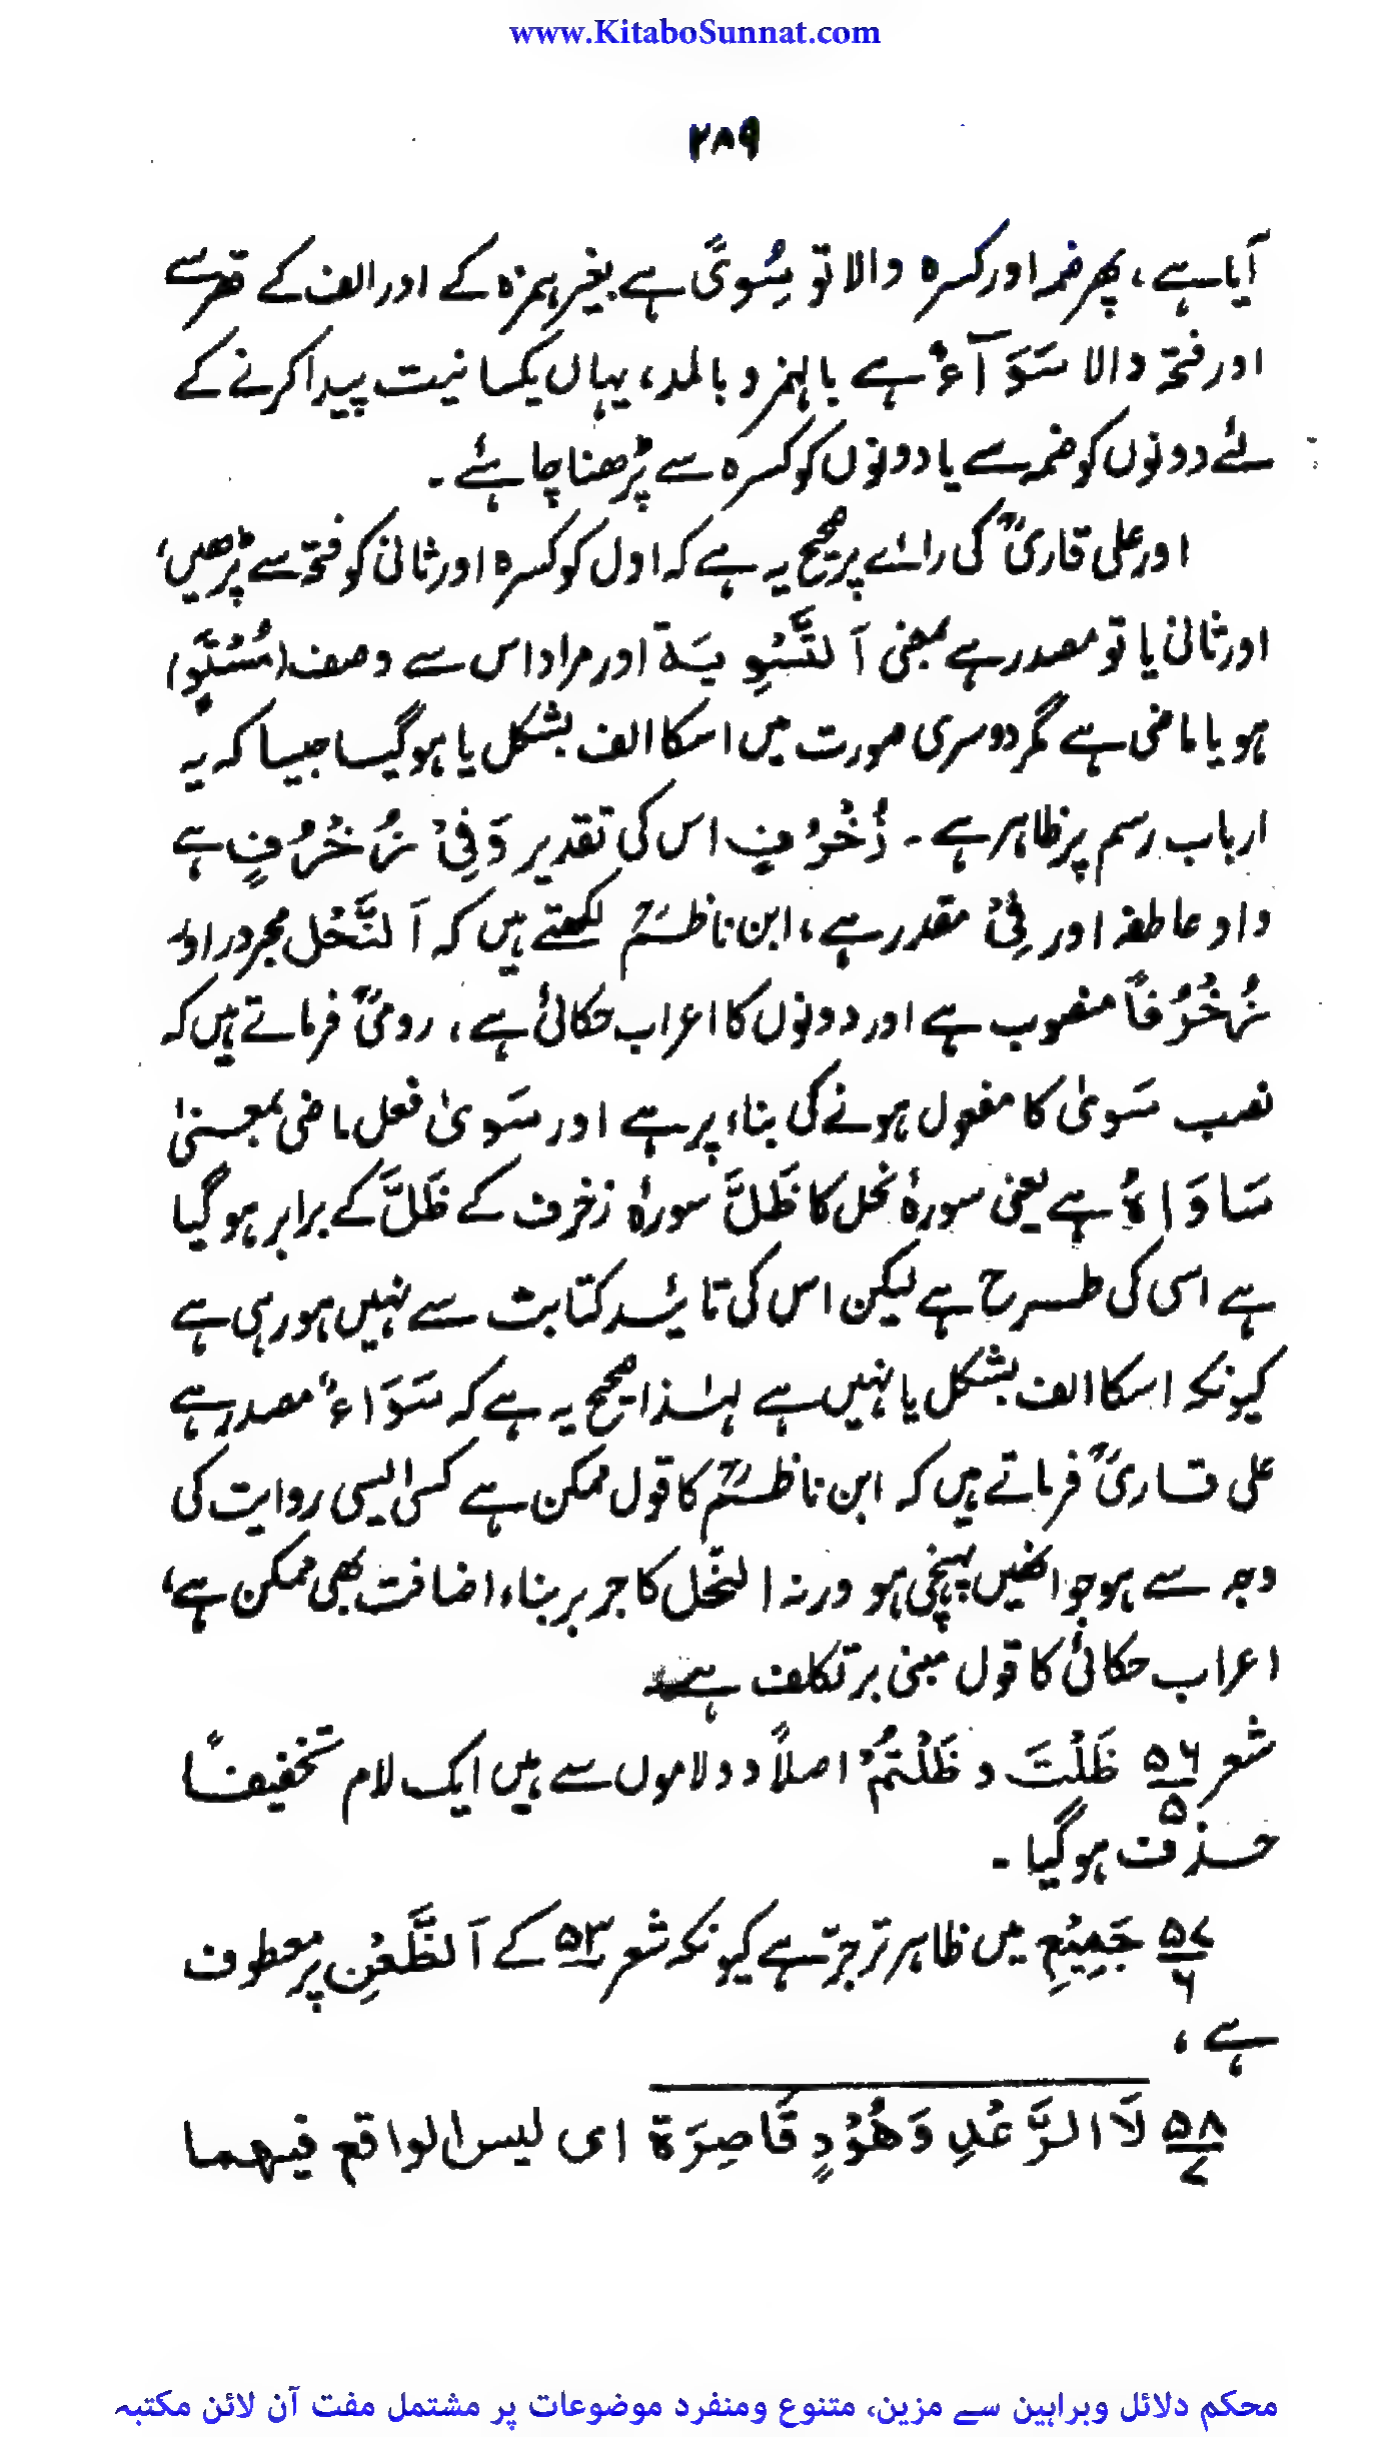 www.KitaboSunnat.com
۲۸۹
آیا ہے، پھر ضمہ اور کسرہ والا تو سِسُویً ہے بغیر ہمزہ کے اور الف کے قصر سے
اور فتحہ والا سَوَآءٌ ہے بالہمز و بالمد، یہاں یکسانیت پیدا کرنے کے
لئے دونوں کو ضمہ سے یا دونوں کو کسرہ سے پڑھنا چاہئے۔
اور علی قاریؒ کی رائے پر صحیح یہ ہے کہ اول کو کسرہ اور ثانی کو فتحہ سے پڑھیں،
اور ثانی یا تو مصدر ہے بمعنی اَلتَّسْوِیَۃ اور مراد اس سے وصف (مُسْتَوٍ)
ہو یا ماضی ہے مگر دوسری صورت میں اسکا الف بشکل یا ہوگیسا جیسا کہ یہ
ارباب رسم پر ظاہر ہے۔ زُخْرُفٍ اس کی تقدیر وَفِیْ زُخْرُفٍ ہے
واو عاطفہ اور فِیْ مقدر ہے، ابن ناظمؒ لکھتے ہیں کہ اَلنَّحْل مجرور اور
زُخْرُفاً منصوب ہے اور دونوں کا اعراب حکائی ہے، رومیؒ فرماتے ہیں کہ
نصب سَویٰ کا مفعول ہونے کی بناء پر ہے اور سَویٰ فعل ماضی بمعنیٰ
سَاوَاہُ ہے یعنی سورۂ نحل کا ظَلَّ سورۂ زخرف کے ظَلَّ کے برابر ہوگیا
ہے اسی کی طرح ہے لیکن اس کی تائید کتابت سے نہیں ہو رہی ہے
کیونکہ اسکا الف بشکل یا نہیں ہے لہٰذا صحیح یہ ہے کہ سَوَاءً مصدر ہے
علی قاریؒ فرماتے ہیں کہ ابن ناظمؒ کا قول ممکن ہے کسی ایسی روایت کی
وجہ سے ہو جو انھیں پہنچی ہو ورنہ النحل کا جر بر بناء اضافت بھی ممکن ہے،
اعراب حکائی کا قول مبنی بر تکلف ہے
شعر ۵۶/۵ ظَلْتَ و ظَلْتُمْ اصلاً دو لاموں سے ہیں ایک لام تخفیفاً
حذف ہوگیا۔
۵۷/۶ جَمِیْعِ میں ظاہر تر جرّ ہے کیونکہ شعر ۵۳ کے اَلظَّعْنِ پر معطوف
ہے،
۵۸/۷ لَا الرَّعْدِ وَھُوْدٍ قَاصِرَۃ ای لیس الواقع فیھما
محکم دلائل وبراہین سے مزین، متنوع ومنفرد موضوعات پر مشتمل مفت آن لائن مکتبہ